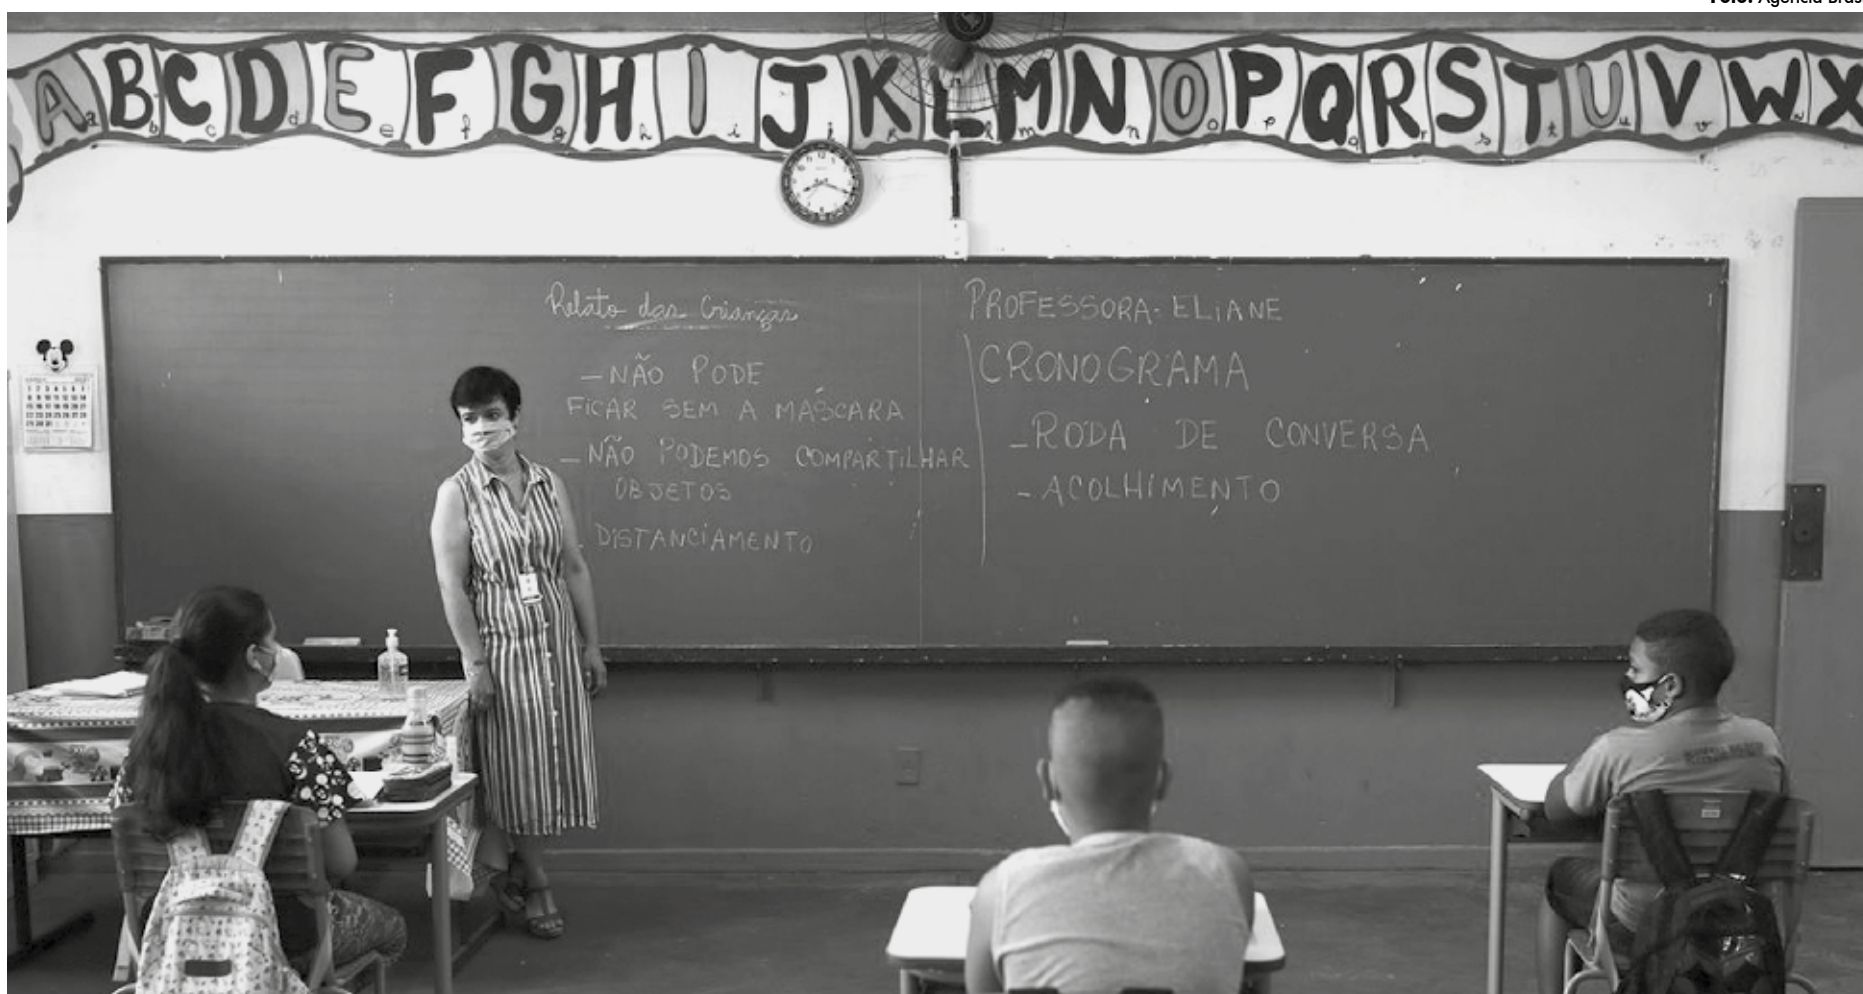 Foto: Agência Bras
A B C D E F G H I J K L M N O P Q R S T U V W X
a b c d e f g h i j k l m n o p q r s t u v
Relato das Crianças
- NÃO PODE
FICAR SEM A MÁSCARA
- NÃO PODEMOS COMPARTILHAR
OBJETOS
- DISTANCIAMENTO
PROFESSORA - ELIANE
CRONOGRAMA
- RODA DE CONVERSA
- ACOLHIMENTO